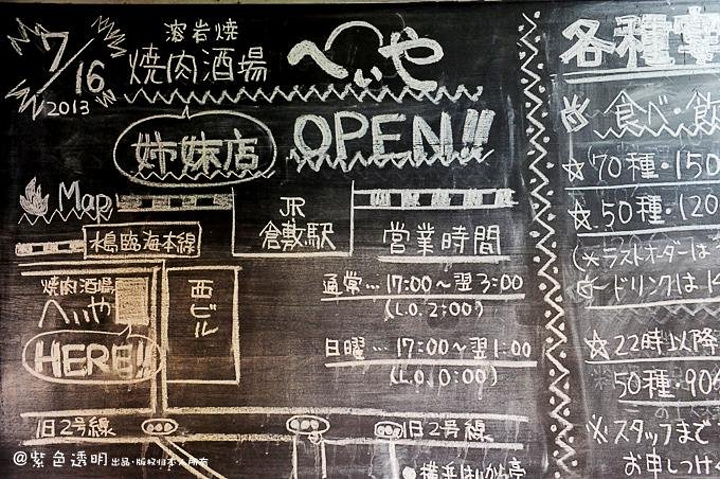 7/16
2013
溶岩焼
焼肉酒場
へいや
姉妹店
OPEN!!
Map
JR
倉敷駅
臨海本線
焼肉酒場
へいや
HERE!!
西ビル
営業時間
通常… 17:00～翌3:00
(L.O. 2:00)
日曜… 17:00～翌1:00
(L.O. 0:00)
旧2号線
旧2号線
各種宴
食べ・飲
☆70種・150
☆50種・120
(※ラストオーダーは
ドリンクは
☆22時以降
50種・90
※スタッフまで
お申しつけ
@紫色透明 出品·版权归本人所有